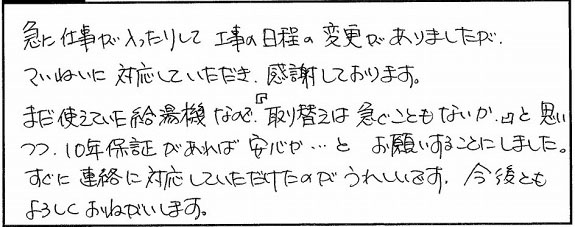 急に仕事が入ったりして 工事の日程の変更がありましたが、
ていねいに対応していただき、感謝しております。
まだ使えていた給湯機なので、『取り替えは急ぐこともないか、』と思い
つつ、10年保証があれば安心か…と お願いすることにしました。
すぐに連絡に対応していただけたのがうれしいです。今後とも
よろしくおねがいします。